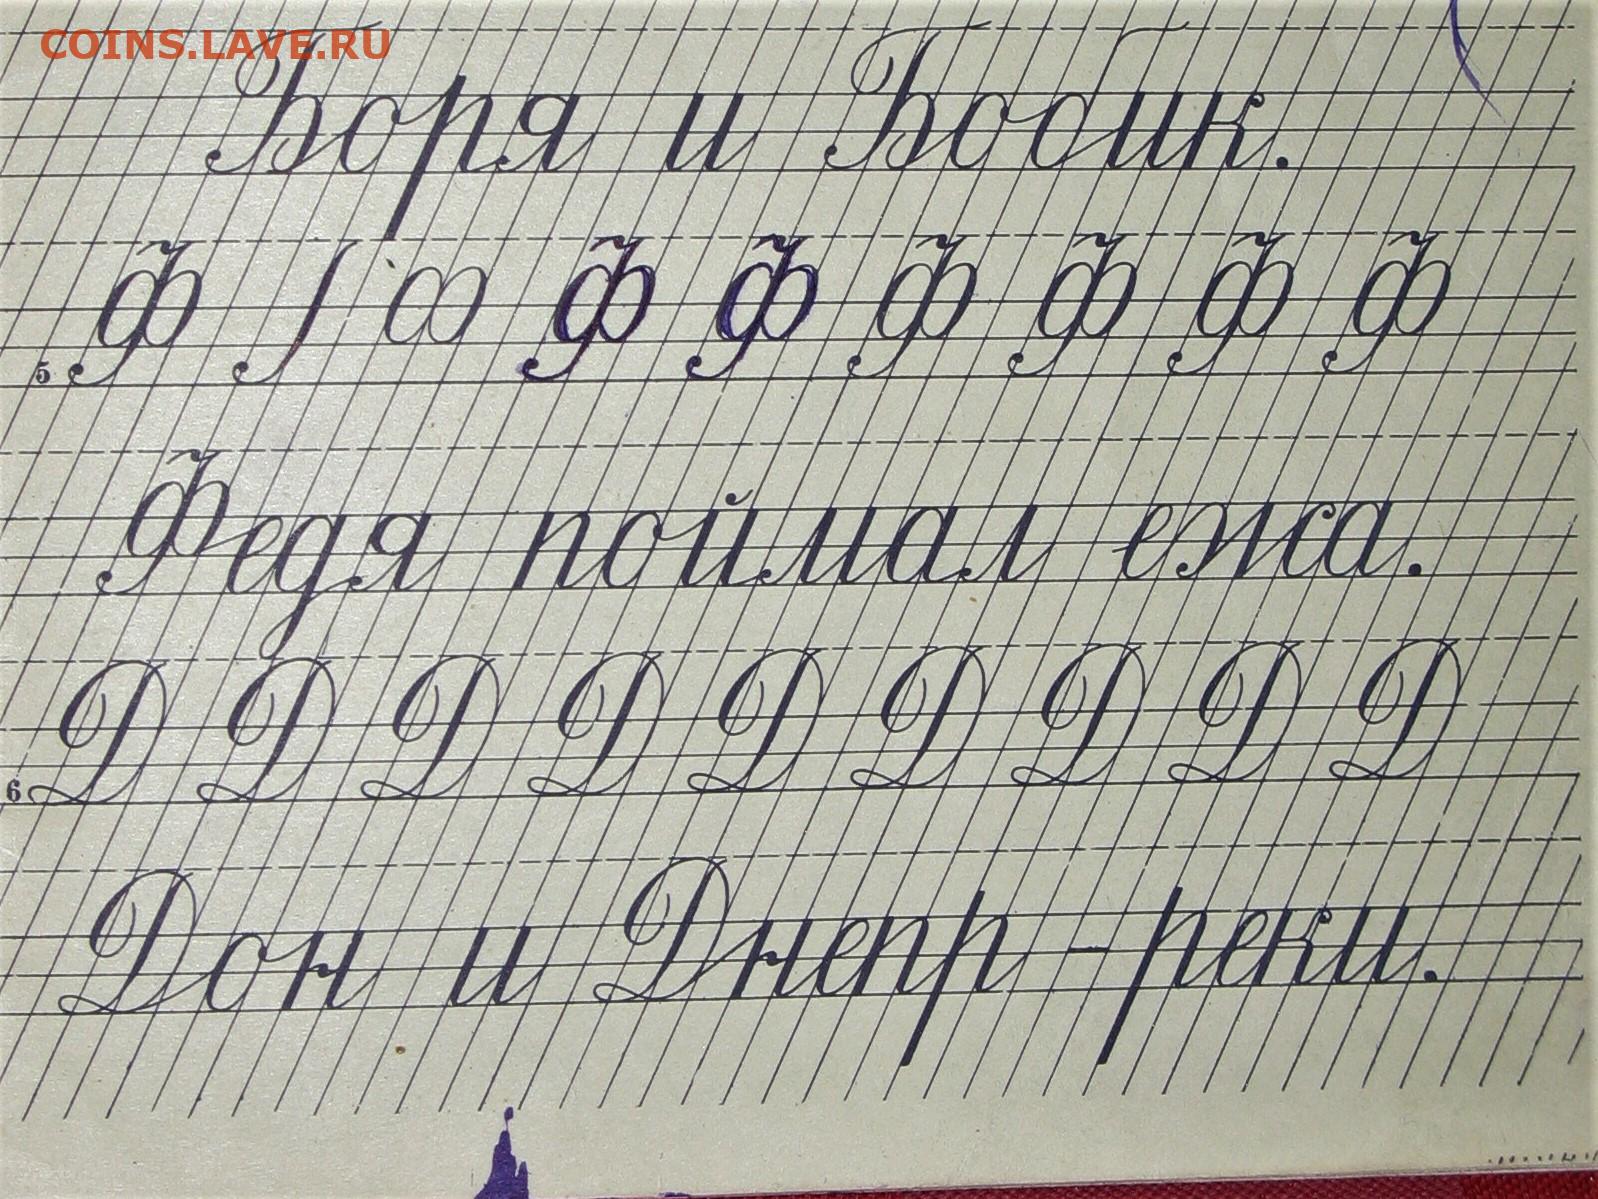 COINS.LAVE.RU
Боря и Бобик.
5 Ф Ф Ф Ф Ф Ф Ф
Федя поймал ежа.
6 Д Д Д Д Д Д Д Д Д
Дон и Днепр - реки.